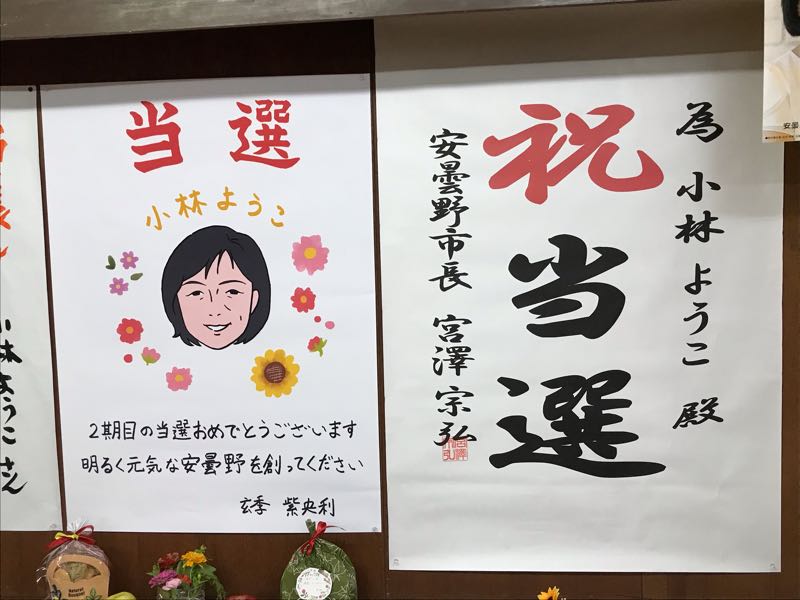 当選
小林ようこ
2期目の当選おめでとうございます
明るく元気な安曇野を創ってください
玄季 紫央利
為 小林ようこ 殿
祝 当選
安曇野市長 宮澤宗弘
小林ようこさん
安曇